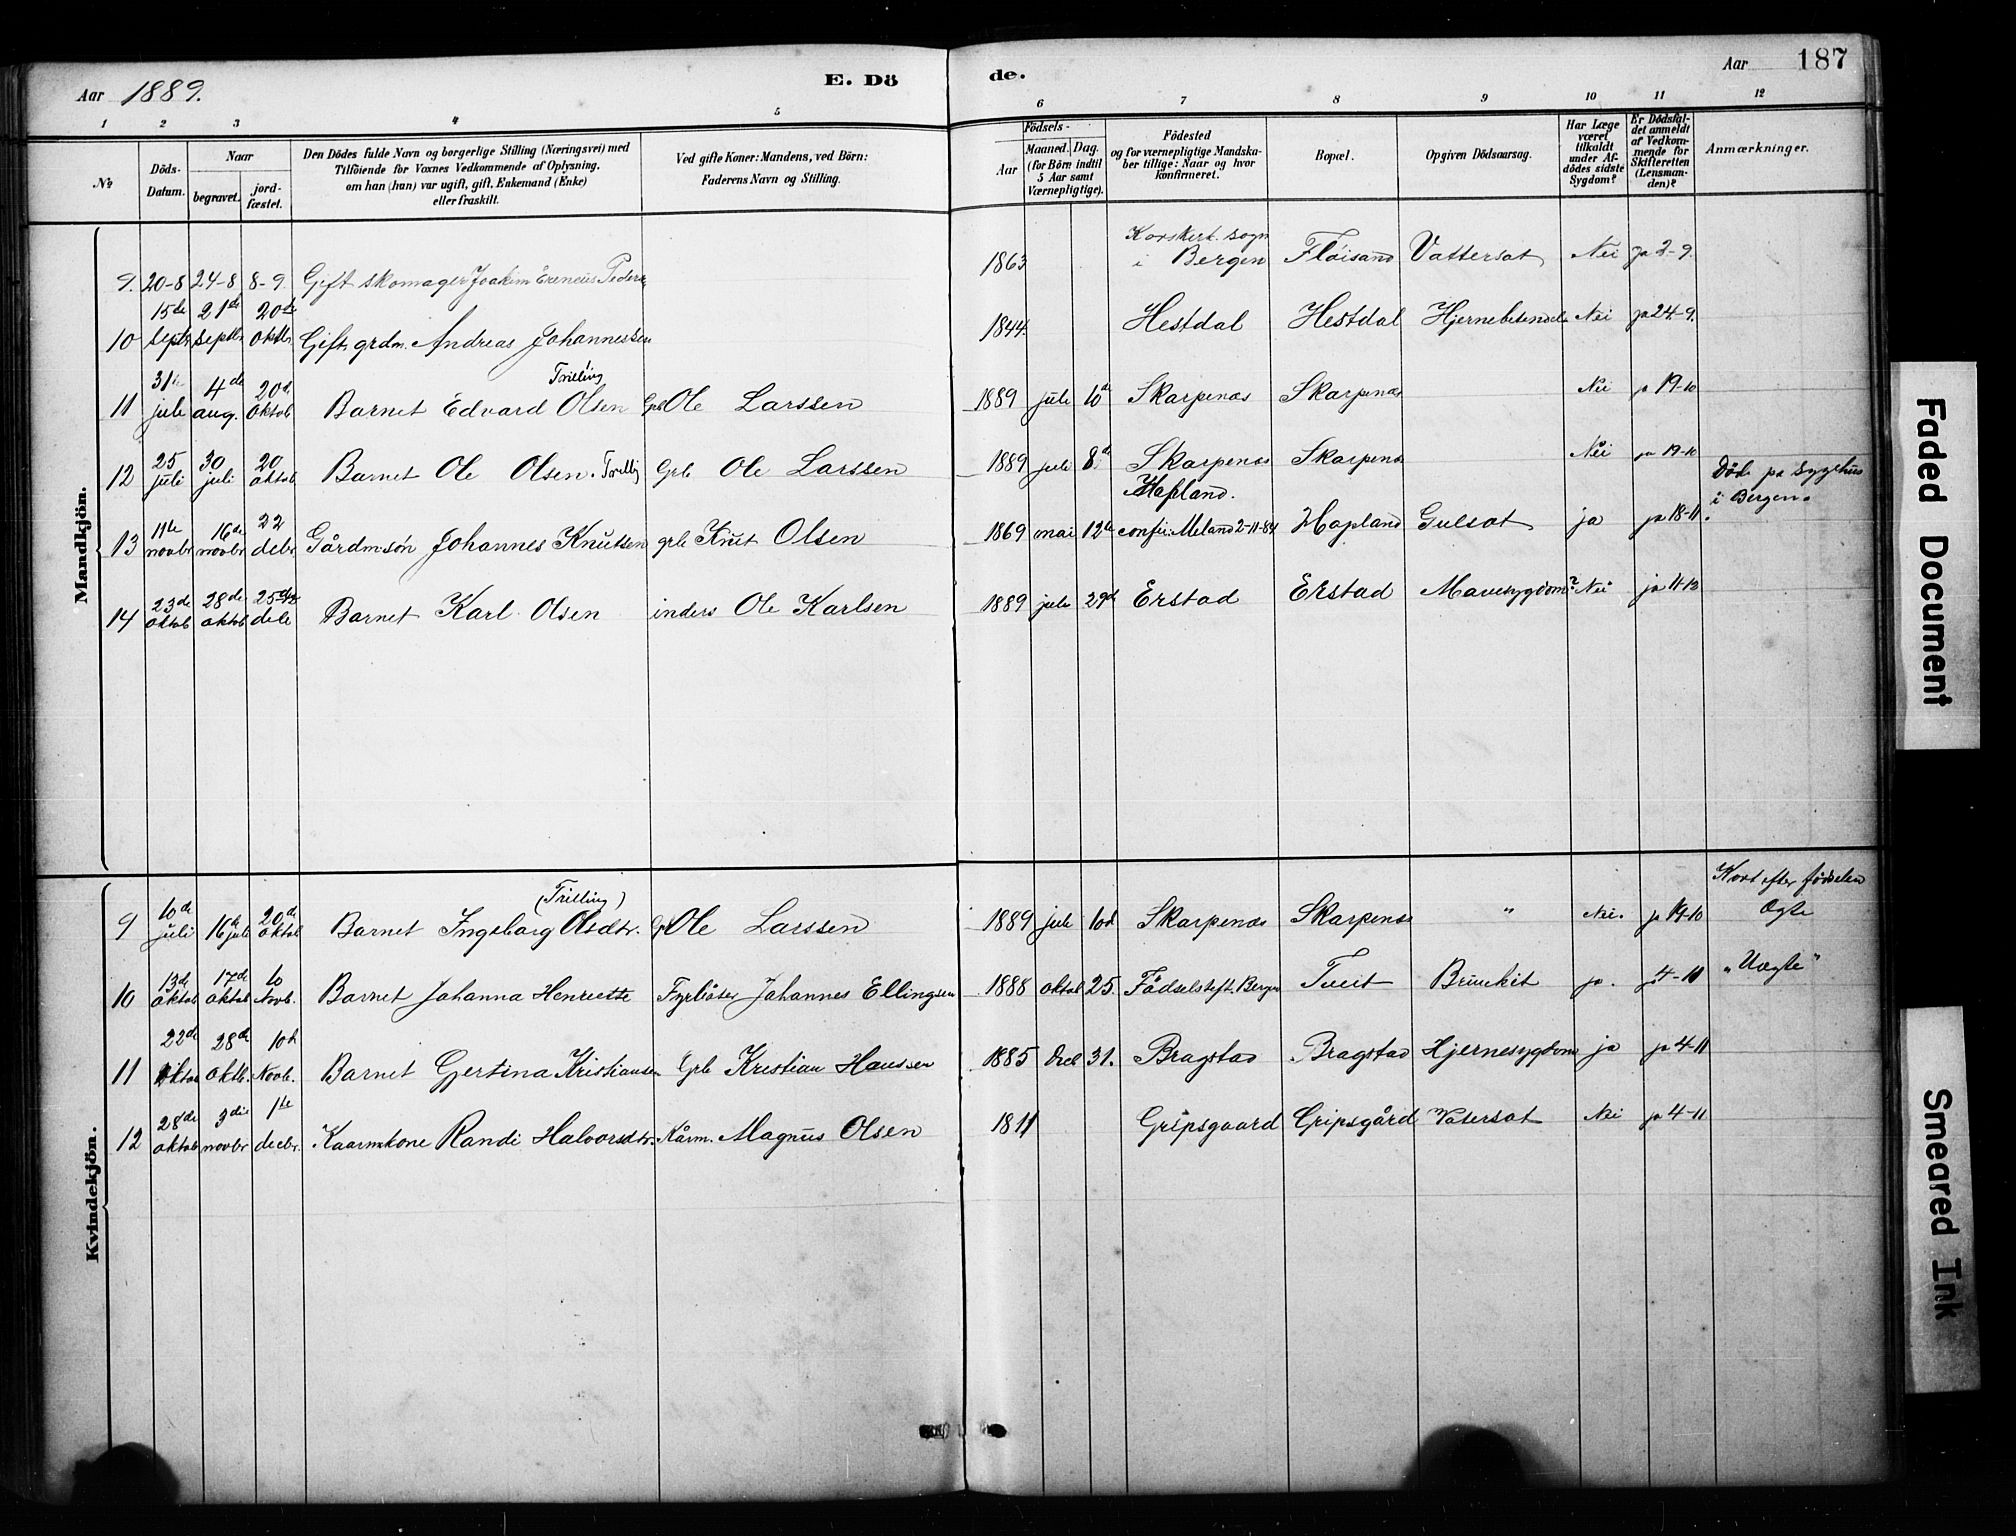 Aar 1889.
E. Dö
de.
Aar
187
1 2 3 4 5 6 7 8 9 10 11 12
№
Döds-
Datum.
Naar
begravet.
jord-
fæstet.
Den Dödes fulde Navn og borgerlige Stilling (Næringsvei) med
Tilföiende for Voxnes Vedkommende af Oplysning.
om han (hun) var ugift, gift, Enkemand (Enke)
eller fraskilt.
Ved gifte Koner: Mandens, ved Börn:
Faderens Navn og Stilling.
Aar
Födsels-
Maaned. Dag.
(for Börn indtil
5 Aar samt
Værnepligtige).
Födested
og for værnepligtige Mandska-
ber tillige: Naar og hvor
konfirmeret.
Bopæl.
Opgiven Dödsaarsag.
Har Læge
været
tilkaldt
under Af-
dödes sidste
Sygdom?
Er Dödsfal-
det anmeldt
af Vedkom-
mende for
Skifteretten
(Lensman-
den)?
Anmærkninger.
Mandkjön.
9. 20-8 24-8 8-9. Gift skomager Joakim Ereneus Peders 1863 Korskirk. sogn i Bergen Fløisand Vattersot Nei ja 2-9.
10 15de septr 21de septbr 20de oktbr. Gift grdm. Andreas Johannessen 1844. Hestdal Hestdal Nei ja 24-9.
11 31te jule 4de aug. 20de oktob Barnet Edvard Olsen Trilling Grb Ole Larssen 1889 jule 10d Skarpenæs Skarpenæs Nei ja 19-10
12 25 juli 30 juli 20 oktob Barnet Ole Olsen. Trillig Grb Ole Larssen 1889 jule 8d Skarpenæs Skarpenæs Nei ja 19-10
13 11te novbr 16de novbr 22 debr Gårdm.søn Johannes Knutsen grb Knut Olsen 1869 mai 12te Hopland. confir. Meland 2-11-84 Hopland Gulsot ja ja 18-11. Död på sygehus i Bergen.
14 23de oktob 28de oktob Barnet Karl Olsen inders Ole Karlsen 1889 jule 29d Erstad Erstad Mavesygdom? Nei ja 11-12
Kvindekjön.
9 10de juli 16de jule 20de oktob Barnet Ingeborg Olsdtr. (Trilling) Gr Ole Larssen 1889 jule 10d Skarpenæs Skarpenæs " Nei. ja 19-10 Kort efter födselen Ægte
10 13de oktob 17de oktob 10 Novb. Barnet Johanna Henriette Fyrböter Johannes Ellingsen 1888 oktob 25. Födselsstift. Bergen Tveit ja. ja 4-11 "Uægte"
11 22de oktob 28de oktb. 10d Novb. Barnet Gjertina Kristiansen Grb Kristian Hanssen 1885 Decb 31. Bragstad Bragstad Hjernesygdom ja ja 4-11
12 28de oktob 3die novbr 1te decbr. Kaarmkone Randi Halvorsdtr. Kårm. Magnus Olsen 1811 Gripsgaard Gripsgård Vatersot Nei ja 4-11
Faded Document
Smeared Ink